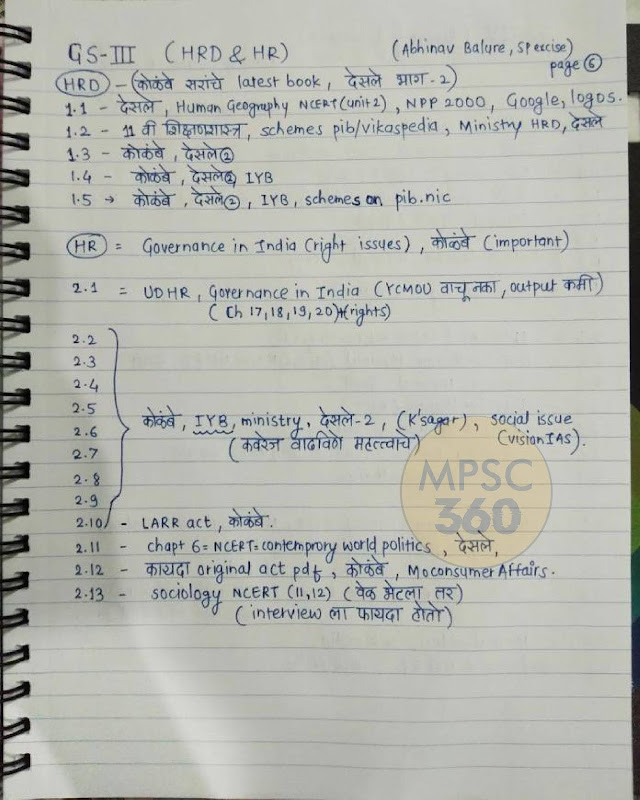 GS-III (HRD & HR) (Abhinav Balure, SP excise)
page 6
HRD - (कोळंबे सरांचे latest book, देसले भाग-2)
1.1 - देसले, Human Geography NCERT (unit 2), NPP 2000, Google, logos.
1.2 - 11 वी शिक्षणशास्त्र, schemes pib/vikaspedia, Ministry HRD, देसले
1.3 - कोळंबे, देसले②
1.4 - कोळंबे, देसले② IYB
1.5 → कोळंबे, देसले②, IYB, schemes on pib.nic
HR = Governance in India (right issues), कोळंबे (important)
2.1 = UDHR, Governance in India (YCMOU वाचू नका, output कमी)
(Ch 17,18,19,20) (rights)
2.2
2.3
2.4
2.5
2.6
2.7
2.8
2.9
कोळंबे, IYB, ministry, देसले-2, (K'sagar), social issue
(कवरेज वाढविणे महत्त्वाचे) (vision IAS).
MPSC
360
2.10 - LARR act, कोळंबे.
2.11 - chapt 6 = NCERT = contemprory world politics, देसले,
2.12 - कायदा original act pdf, कोळंबे, Mo consumer Affairs.
2.13 - sociology NCERT (11,12) (वेळ भेटला तर)
(interview ला फायदा होतो)